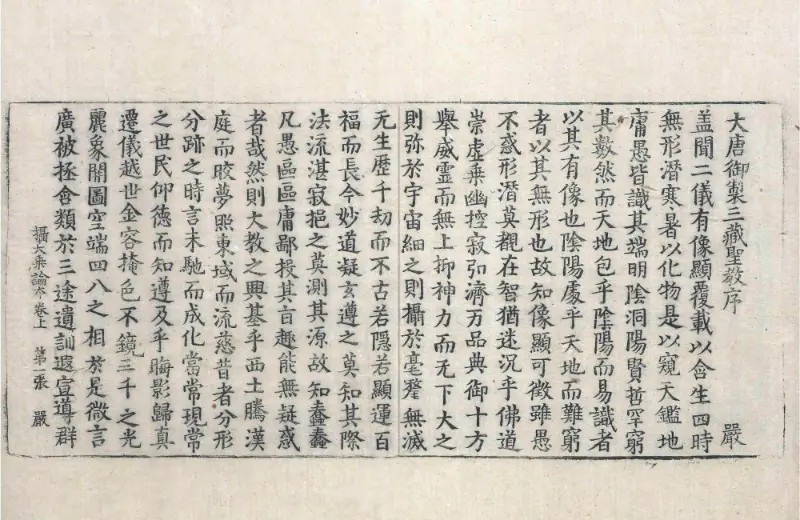 大唐御製三藏聖教序 嚴
盖聞二儀有像顯覆載以含生四時
無形潛寒暑以化物是以窺天鑑地
庸愚皆識其端明陰洞陽賢哲罕窮
其數然而天地包乎陰陽而易識者
以其有像也陰陽處乎天地而難窮
者以其無形也故知像顯可徵雖愚
不惑形潛莫覩在智猶迷況乎佛道
崇虛乗幽控寂弘濟万品典御十方
舉威靈而無上抑神力而无下大之
則弥於宇宙細之則攝於毫氂無滅
无生歷千劫而不古若隱若顯運百
福而長今妙道凝玄遵之莫知其際
法流湛寂挹之莫測其源故知蠢蠢
凡愚區區庸鄙投其旨趣能無疑惑
者哉然則大教之興基乎西土騰漢
庭而晈夢照東域而流慈昔者分形
分跡之時言未馳而成化當常現常
之世民仰德而知遵及乎晦影歸真
遷儀越世金容掩色不鏡三千之光
麗象開圖空端四八之相於是微言
廣被拯含類於三途遺訓遐宣導群
攝大乗論 卷上 第一張 嚴